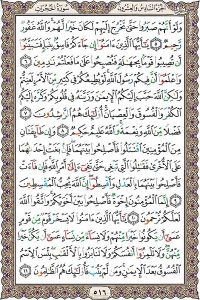 الجزء السادس والعشرون سورة الحجرات
وَلَوْ أَنَّهُمْ صَبَرُوا۟ حَتَّىٰ تَخْرُجَ إِلَيْهِمْ لَكَانَ خَيْرًا لَّهُمْ ۚ وَٱللَّهُ غَفُورٌ
رَّحِيمٌ ٥ يَٰٓأَيُّهَا ٱلَّذِينَ ءَامَنُوٓا۟ إِن جَآءَكُمْ فَاسِقٌۢ بِنَبَإٍ فَتَبَيَّنُوٓا۟
أَن تُصِيبُوا۟ قَوْمًۢا بِجَهَٰلَةٍ فَتُصْبِحُوا۟ عَلَىٰ مَا فَعَلْتُمْ نَٰدِمِينَ ٦
وَٱعْلَمُوٓا۟ أَنَّ فِيكُمْ رَسُولَ ٱللَّهِ ۚ لَوْ يُطِيعُكُمْ فِى كَثِيرٍ مِّنَ ٱلْأَمْرِ لَعَنِتُّمْ
وَلَٰكِنَّ ٱللَّهَ حَبَّبَ إِلَيْكُمُ ٱلْإِيمَٰنَ وَزَيَّنَهُۥ فِى قُلُوبِكُمْ وَكَرَّهَ إِلَيْكُمُ
ٱلْكُفْرَ وَٱلْفُسُوقَ وَٱلْعِصْيَانَ ۚ أُو۟لَٰٓئِكَ هُمُ ٱلرَّٰشِدُونَ ٧
فَضْلًا مِّنَ ٱللَّهِ وَنِعْمَةً ۚ وَٱللَّهُ عَلِيمٌ حَكِيمٌ ٨ وَإِن طَآئِفَتَانِ
مِنَ ٱلْمُؤْمِنِينَ ٱقْتَتَلُوا۟ فَأَصْلِحُوا۟ بَيْنَهُمَا ۖ فَإِنۢ بَغَتْ إِحْدَىٰهُمَا
عَلَى ٱلْأُخْرَىٰ فَقَٰتِلُوا۟ ٱلَّتِى تَبْغِى حَتَّىٰ تَفِىٓءَ إِلَىٰٓ أَمْرِ ٱللَّهِ ۚ فَإِن فَآءَتْ
فَأَصْلِحُوا۟ بَيْنَهُمَا بِٱلْعَدْلِ وَأَقْسِطُوٓا۟ ۖ إِنَّ ٱللَّهَ يُحِبُّ ٱلْمُقْسِطِينَ ٩
إِنَّمَا ٱلْمُؤْمِنُونَ إِخْوَةٌ فَأَصْلِحُوا۟ بَيْنَ أَخَوَيْكُمْ ۚ وَٱتَّقُوا۟ ٱللَّهَ
لَعَلَّكُمْ تُرْحَمُونَ ١٠ يَٰٓأَيُّهَا ٱلَّذِينَ ءَامَنُوا۟ لَا يَسْخَرْ قَوْمٌ مِّن قَوْمٍ
عَسَىٰٓ أَن يَكُونُوا۟ خَيْرًا مِّنْهُمْ وَلَا نِسَآءٌ مِّن نِّسَآءٍ عَسَىٰٓ أَن يَكُنَّ خَيْرًا
مِّنْهُنَّ ۖ وَلَا تَلْمِزُوٓا۟ أَنفُسَكُمْ وَلَا تَنَابَزُوا۟ بِٱلْأَلْقَٰبِ ۖ بِئْسَ ٱلِٱسْمُ
ٱلْفُسُوقُ بَعْدَ ٱلْإِيمَٰنِ ۚ وَمَن لَّمْ يَتُبْ فَأُو۟لَٰٓئِكَ هُمُ ٱلظَّٰلِمُونَ ١١
٥١٦